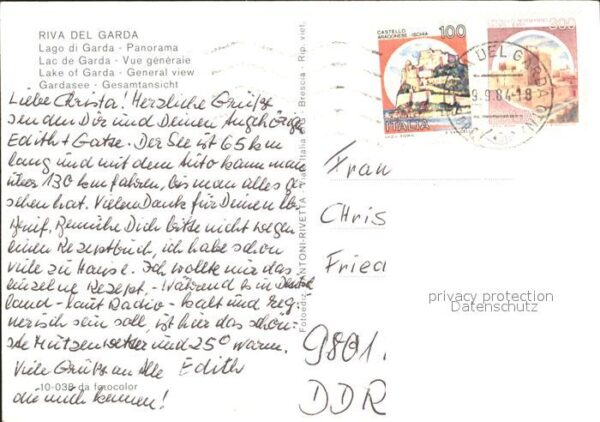 RIVA DEL GARDA
Lago di Garda - Panorama
Lac de Garde - Vue générale
Lake of Garda - General view
Gardasee - Gesamtansicht
Liebe Christa! Herzliche Grüße
senden Dir und Deinen Angehörige
Edith + Gatte. Der See ist 65 km
lang und mit dem Auto kann man
über 130 km fahren, bis man alles ge
sehen hat. Vielen Dank für Deinen lb.
Brief. Bemühe Dich bitte nicht wegen
einen Rezeptbuch, ich habe schon
viele zu Hause. Ich wollte nur das
einzelne Rezept. - Während es in Deutsch
land - laut Radio - kalt und reg-
nerisch sein soll, ist hier das schön-
ste Hützenwetter und 25° warm.
Viele Grüße an Alle Edith
10-038 da fotocolor
die mich kennen!
Fotoediz. ANTONI-RIVETTA - Viale Italia - Brescia - Rip. viet.
CASTELLO
ARAGONESE - ISCHIA
100
ITALIA
300
DEL GARDA
9.9.84-18
Frau
Chris
Fried
privacy protection
Datenschutz
9801.
DDR